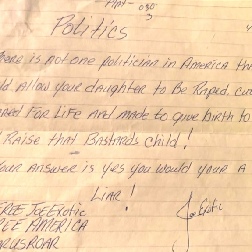 Politics
is not one politician in America
allow your daughter to Be Raped
For Life and made to give Birth to
Raise that Bastards child!
your answer is yes you would your A
Liar!
FREE JoeExotic
FREE AMERICA
Joe Exotic